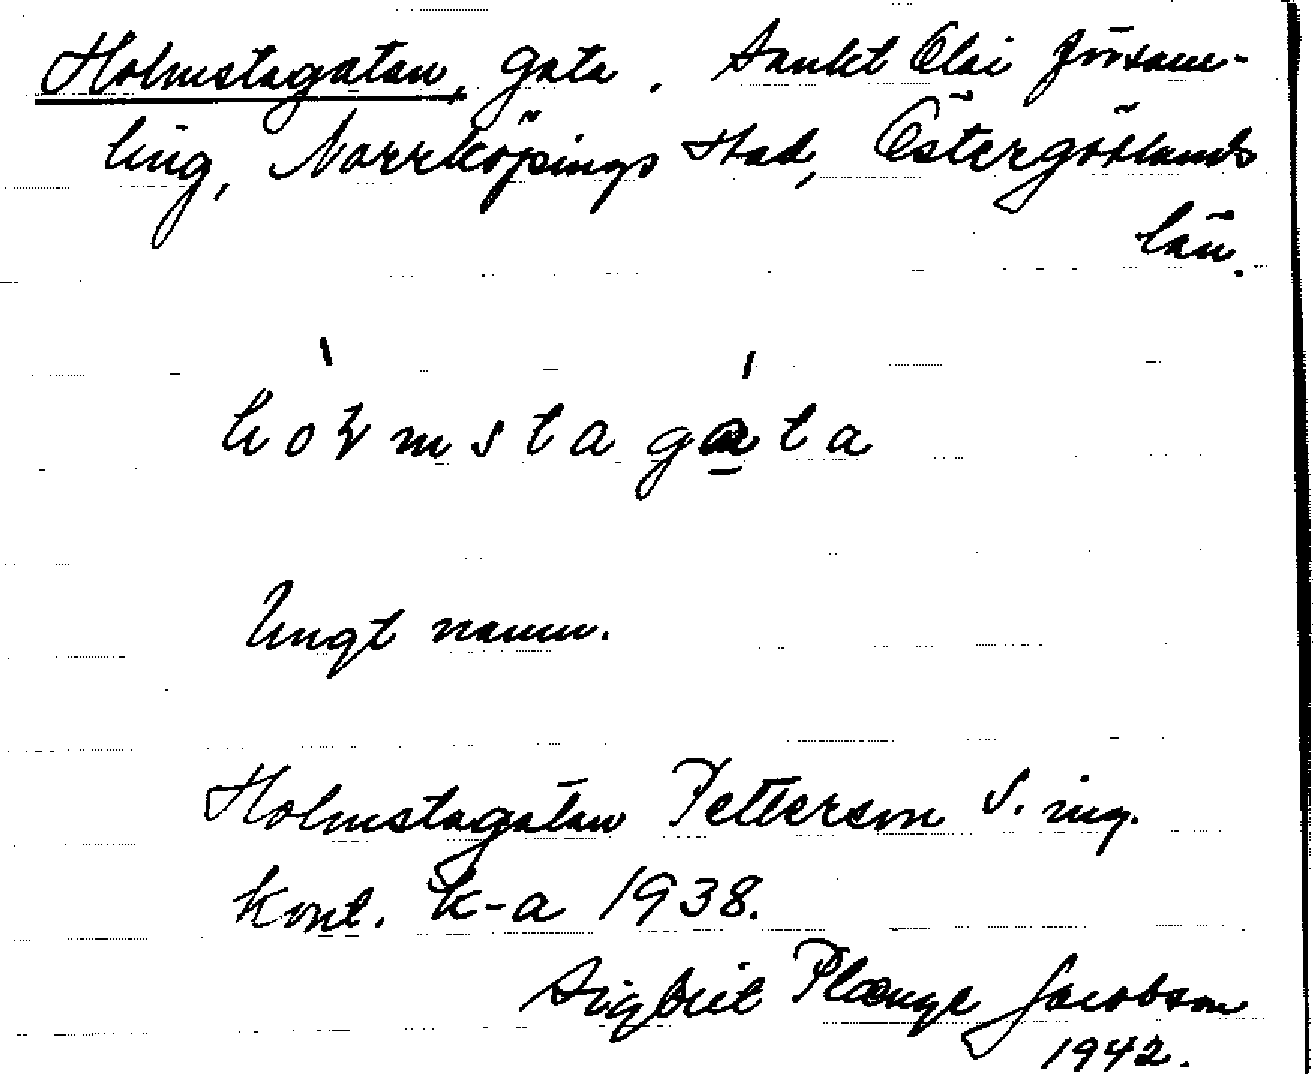 Holmstagatan, gata. Sankt Olai försam-
ling, Norrköpings stad, Östergötlands
län.
hòɫmstagáta
Ungt namn.
Holmstagatan Petterson S. ing.
kont. k-a 1938.
Sigbrit Plænge Jacobson
1942.